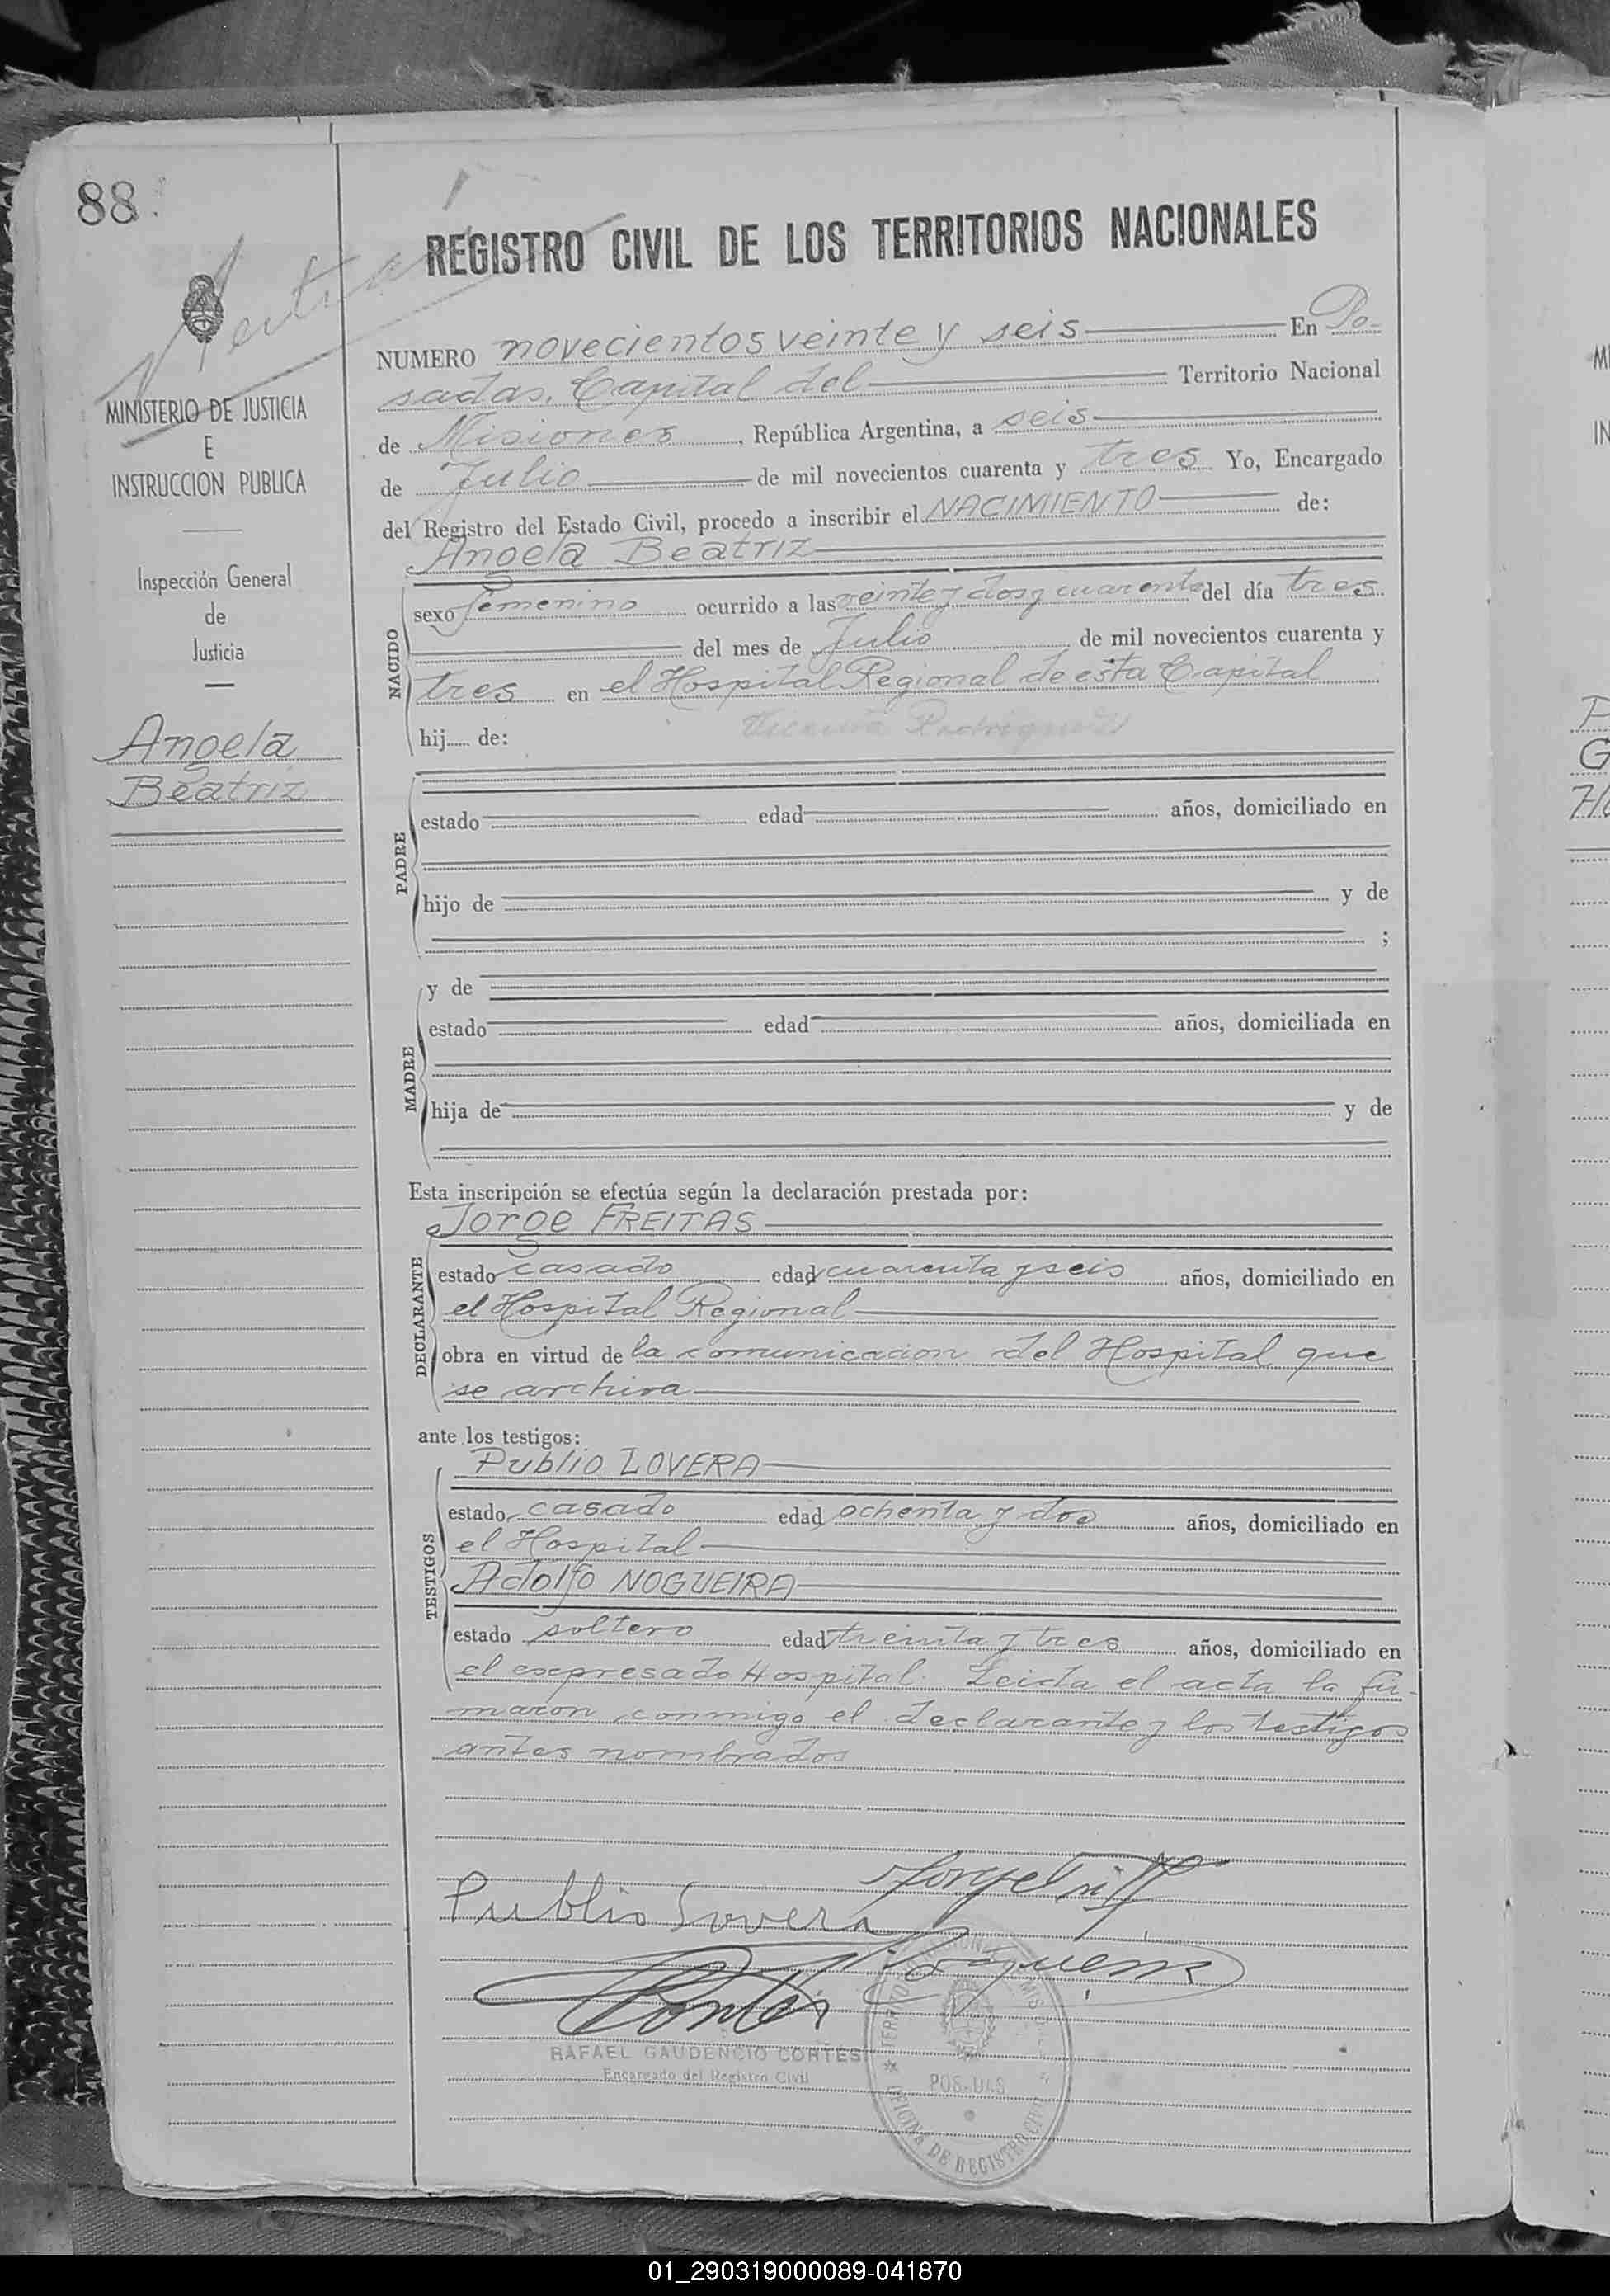 88
REGISTRO CIVIL DE LOS TERRITORIOS NACIONALES
MINISTERIO DE JUSTICIA
E
INSTRUCCION PUBLICA
Inspección General
de
Justicia
Angela
Beatriz
NUMERO novecientos veinte y seis En Po-
sadas, Capital del Territorio Nacional
de Misiones, República Argentina, a seis
de Julio de mil novecientos cuarenta y tres Yo, Encargado
del Registro del Estado Civil, procedo a inscribir el NACIMIENTO de:
NACIDO
Angela Beatriz
sexo femenino ocurrido a las veinte y dos y cuarenta del día tres
del mes de Julio de mil novecientos cuarenta y
tres en el Hospital Regional de esta Capital
hij..... de:
PADRE
estado edad años, domiciliado en
hijo de y de
;
MADRE
y de
estado edad años, domiciliada en
hija de y de
Esta inscripción se efectúa según la declaración prestada por:
DECLARANTE
Jorge FREITAS
estado casado edad cuarenta y seis años, domiciliado en
el Hospital Regional
obra en virtud de la comunicacion del Hospital que
se archiva
ante los testigos:
TESTIGOS
Publio LOVERA
estado casado edad ochenta y dos años, domiciliado en
el Hospital
Adolfo NOGUEIRA
estado soltero edad treinta y tres años, domiciliado en
el expresado Hospital. Leida el acta la fir-
maron conmigo el declarante y los testigos
antes nombrados
Publio Lovera
RAFAEL GAUDENCIO CORTES
Encargado del Registro Civil
POSADAS
OFICINA DE REGISTRO CIVIL
01_290319000089-041870